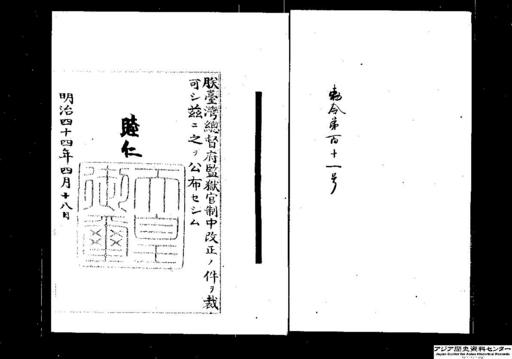 勅令第百十一号
朕臺灣總督府監獄官制中改正ノ件ヲ裁
可シ茲ニ之ヲ公布セシム
睦仁
天皇
御璽
明治四十四年四月十八日
アジア歴史資料センター
Japan Center for Asian Historical Records